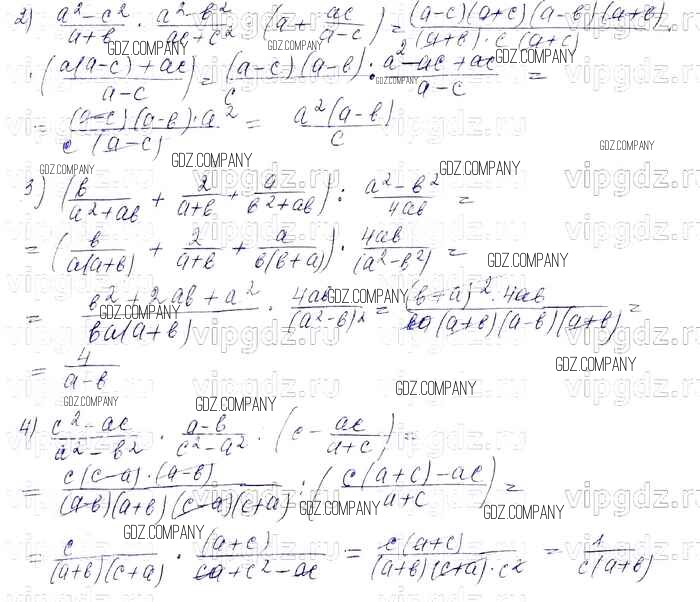 2) (a² - c²)/(a+b) · (a² - b²)/(ac+c²) · (a + ac/(a-c)) = ((a-c)(a+c)(a-b)(a+b))/((a+b)·c(a+c)) ·
· ((a(a-c)+ac)/(a-c)) = ((a-c)(a-b))/c · (a² - ac + ac)/(a-c) =
= ((a-c)(a-b)·a²)/(c(a-c)) = (a²(a-b))/c
3) (b/(a²+ab) + 2/(a+b) + a/(b²+ab)) : (a²-b²)/(4ab) =
= (b/(a(a+b)) + 2/(a+b) + a/(b(b+a))) · 4ab/(a²-b²) =
= (b²+2ab+a²)/(ba(a+b)) · 4ab/(a²-b)² = ((b+a)²·4ab)/(ba(a+b)(a-b)(a+b)) =
= 4/(a-b)
4) (c²-ac)/(a²-b²) · (a-b)/(c²-a²) : (c - ac/(a+c)) =
= (c(c-a)·(a-b))/((a-b)(a+b)(c-a)(c+a)) : ((c(a+c)-ac)/(a+c)) =
= c/((a+b)(c+a)) · (a+c)/(ca+c²-ac) = (c(a+c))/((a+b)(c+a)·c²) = 1/(c(a+b))
GDZ.COMPANY
vipgdz.ru